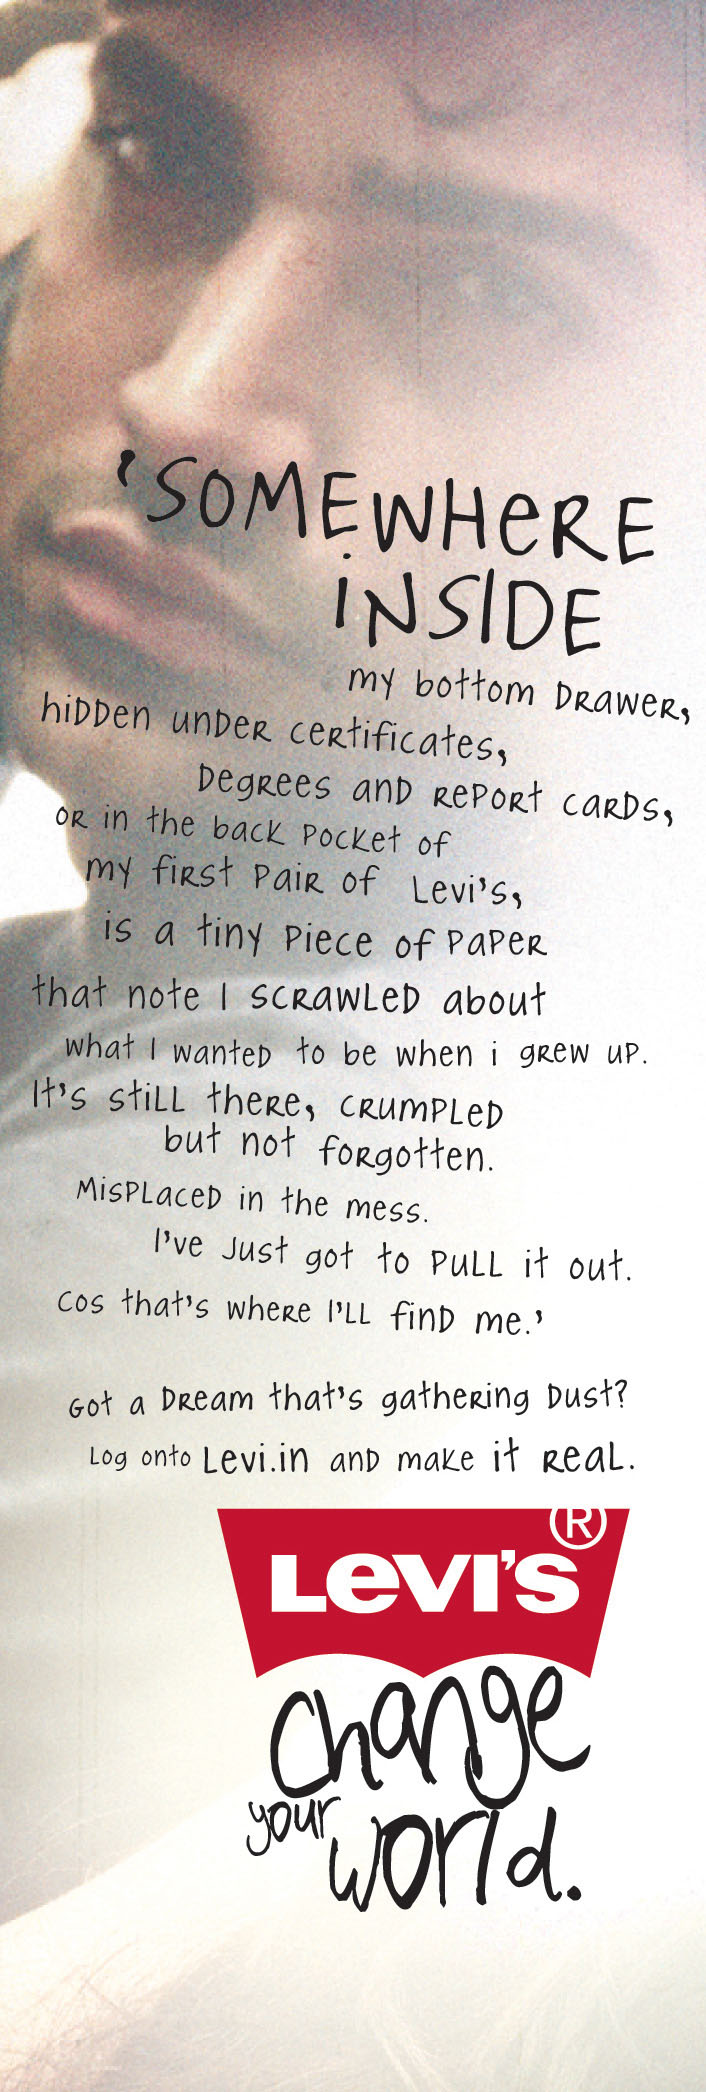 'SOMEWHERE
INSIDE
my bottom DRAWER,
hiDDen unDER CERtificates,
DegREES anD REPORt CARDS,
OR in the back Pocket of
my fiRSt PaiR of Levi's,
is a tiny Piece of PaPER
that note I SCRAWLED about
what I wanteD to be when i gREW uP.
It's stiLL theRE, CRumPLeD
but not foRgotten.
MisPLaceD in the mess.
I've Just got to PuLL it out.
cos that's wheRe I'LL finD me.'
Got a DReam that's gatheRing Dust?
Log onto Levi.in anD make it ReaL.
LEVI'S®
change
your
world.